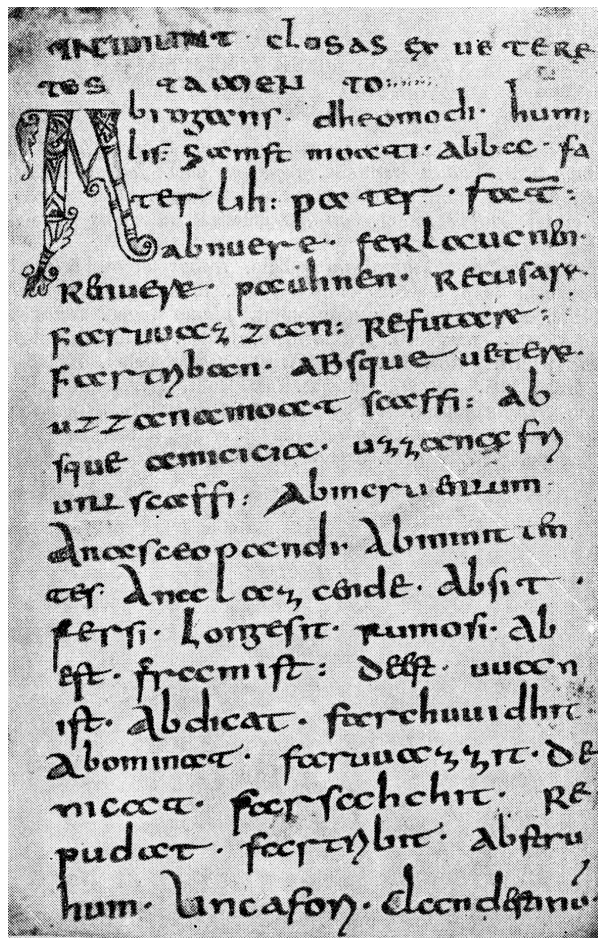 INCIPIUNT CLOSAS EX UETERE
TES TAMEN TO
Abrogans. dheomodi. humi
lis: samft moati. abba. fa
ter lih: pater. fat̄:
abnuere. ferlaucnen.
Renuere. pauhnen. Recusare.
Faruuazzan: Refutare:
Fartriban. ABsque uetere.
uzzanamoat scaffi: Ab
sque amicicia. uzzana fri
unt scaffi: Abincruentum
Anasceopandi. Abinnit en
tes. Anaclazcende. Absit.
Fersi. Longesit. rumosi. Ab
est. framist: deest. uuan
ist. Abdicat. farchuuidhit.
Abominat. faruuazzit. De
nicat. farsahchit. RE
pudat. fartribit. Abstru
hum. Uncafori. Clandestinu.